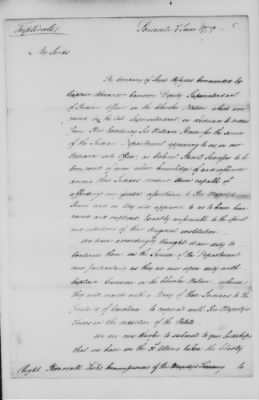 (Triplicate) Savannah 2d June 1779
My Lords
The Company of Loyal Refugees Commanded by
Captain Alexander Cameron Deputy Superintendent
of Indian Affairs in the Cherokee Nation which was
raised by the late Superintendent in obedience to orders
from His Excellency Sir William Howe for the service
of the Indian Department appearing to us on our
Entrance into Office, as Colonel Stuart's
to be
among these Indians render them capable of
affording any great assistance to His Majesty's
Arms and as they also appear to us to have been
raised and employed exactly conformable to the spirit
and intention of their Original institution.
We have accordingly thought it our duty to
continue them in the Service of the Department
more particularly as they are now upon duty with
Captain Cameron in the Cherokee Nation, whence
they will march with a Party of those Indians to the
Frontiers of Carolina to cooperate with His Majesty's
Forces in the reduction of the Rebels.
We are now further to submit to your Lordships
that we have on the
taken the Liberty
Right Honorable Lords Commissioners of His Majesty's Treasury to